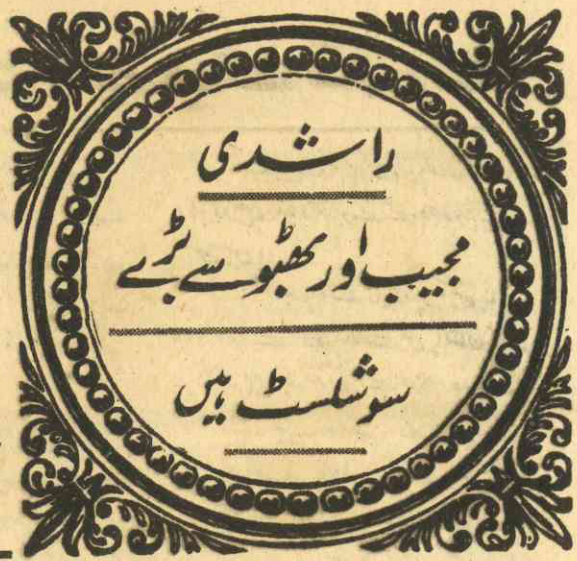 راشدی
مجیب اور بھٹو سے بڑے
سوشلسٹ ہیں